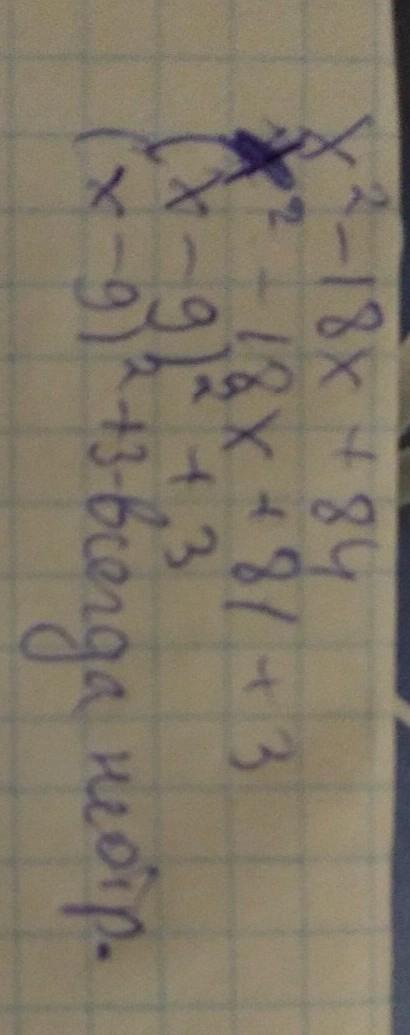 x² - 18x + 84
x² - 18x + 81 + 3
(x - 9)² + 3
(x - 9)² + 3 - всегда неотр.